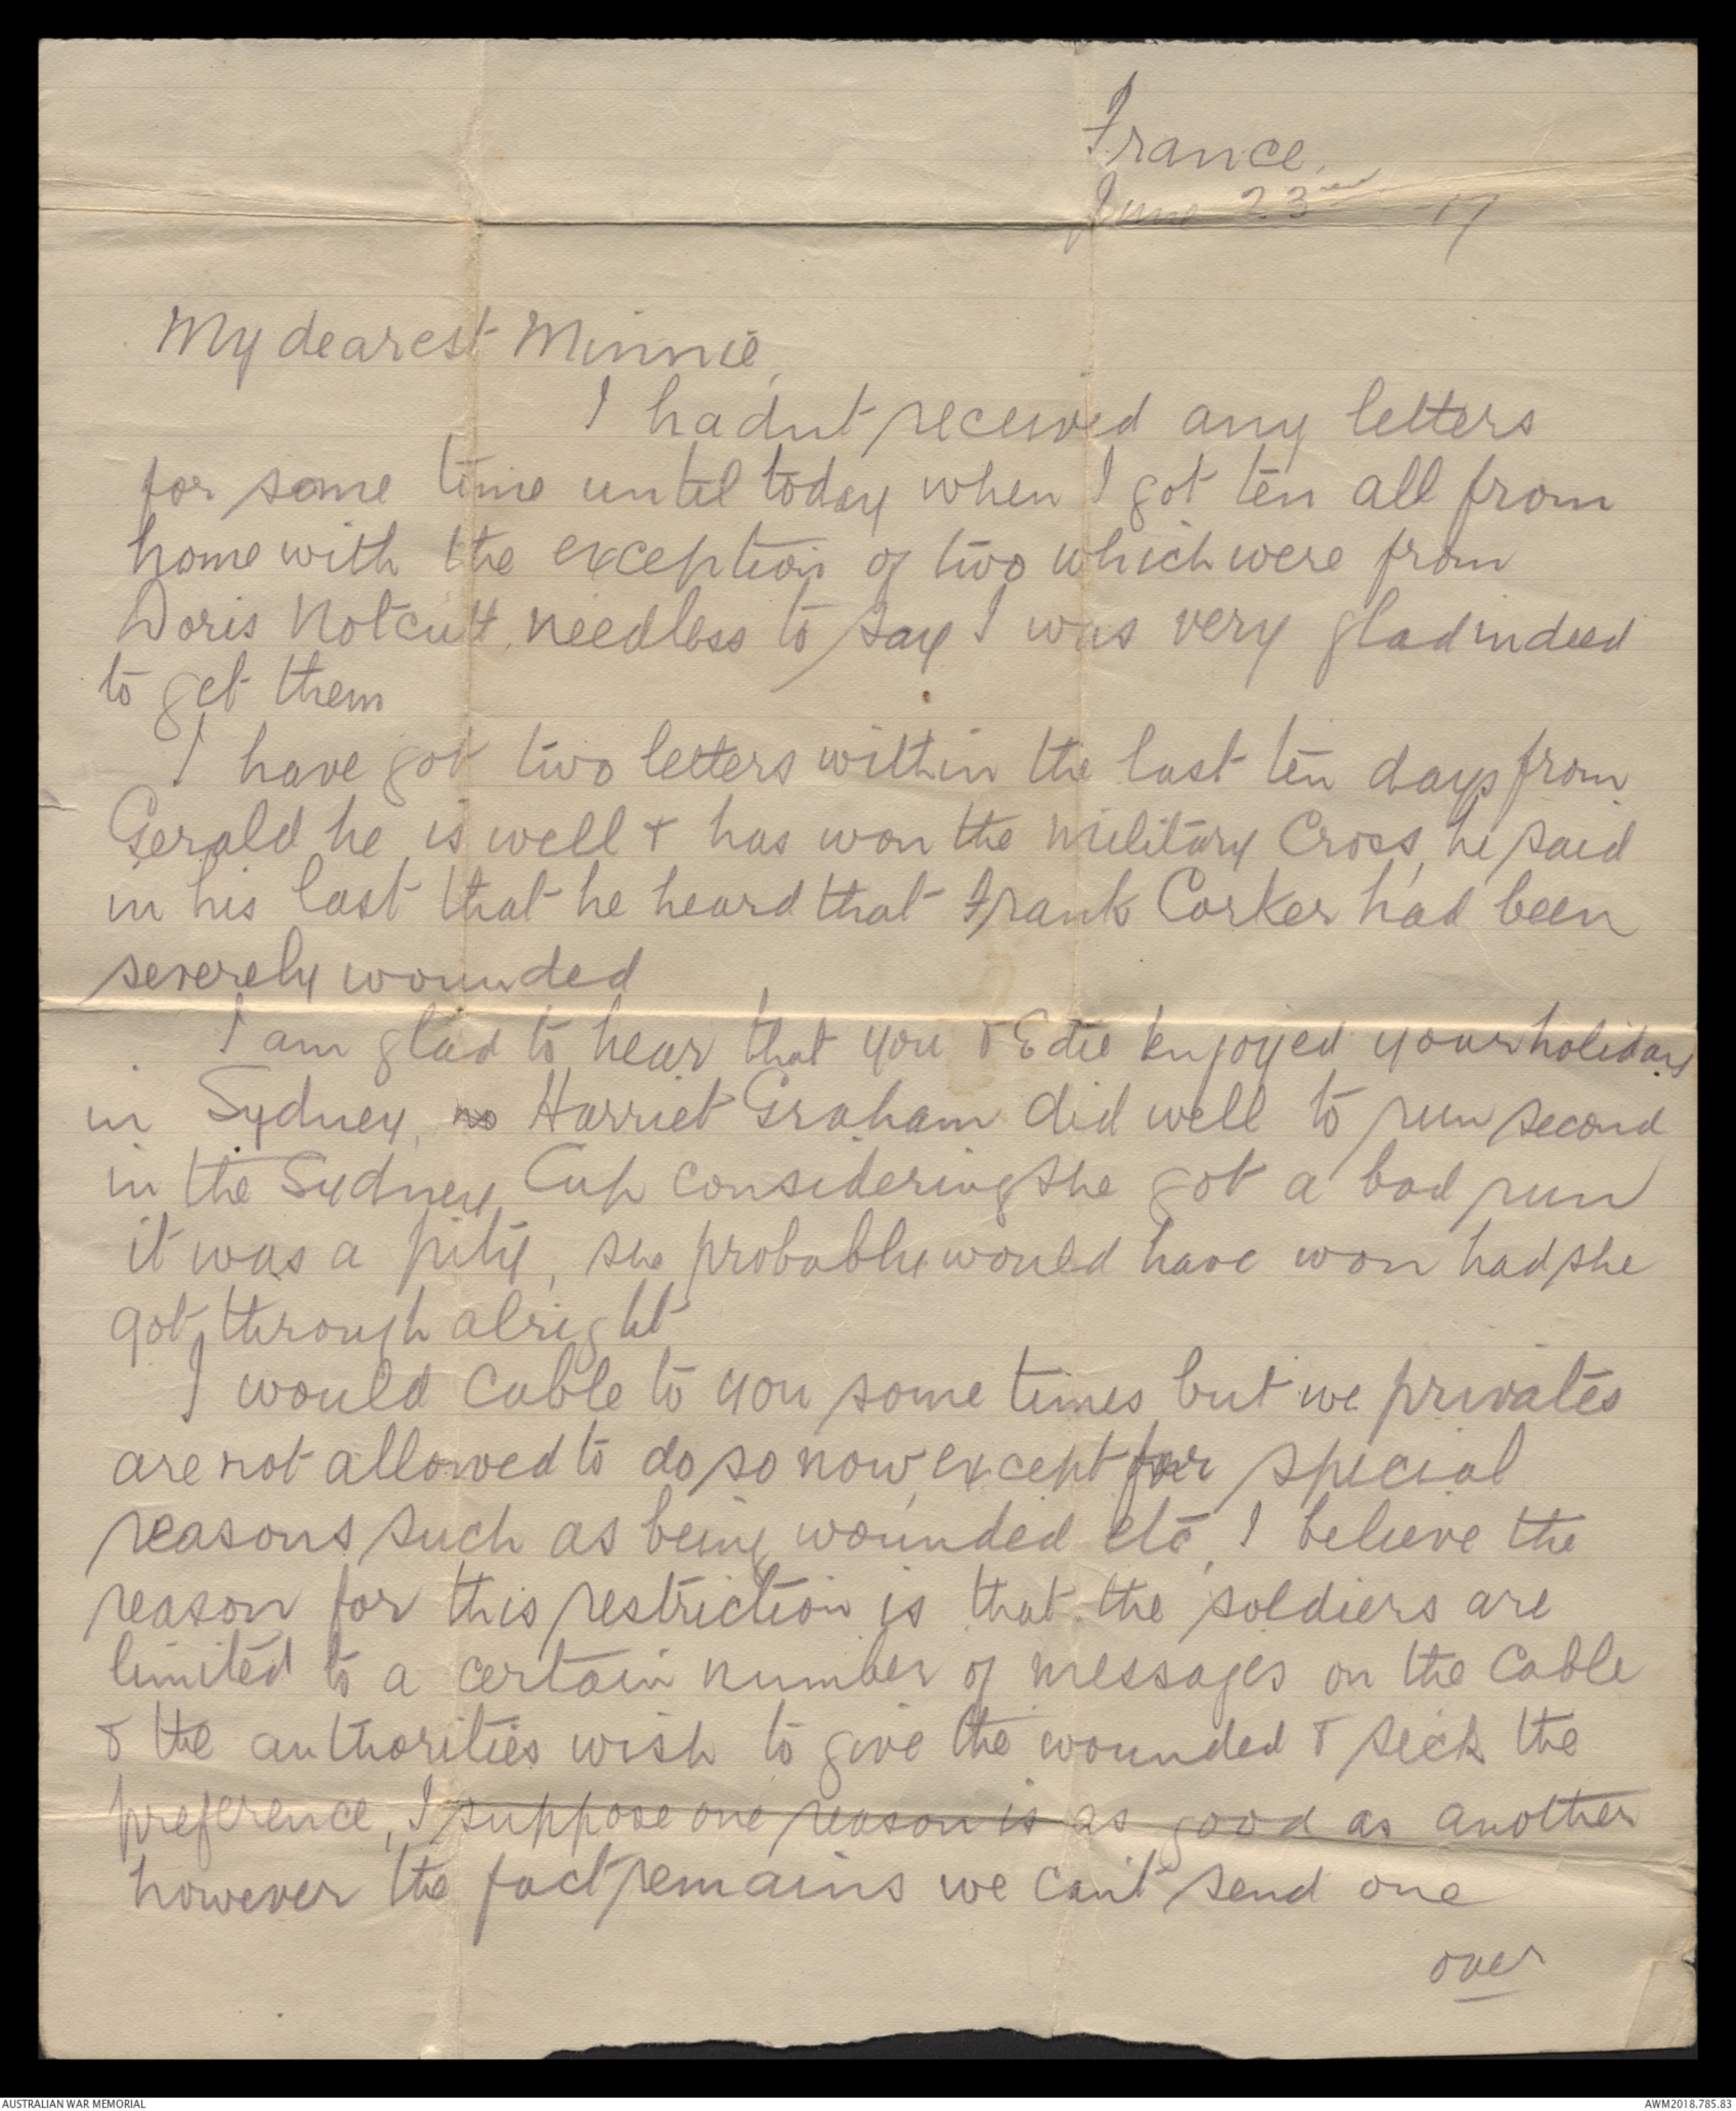 France.
June 23rd -17
My dearest Minnie,
I hadnt received any letters
for some time until today when I got ten all from
home with the exception of two which were from
Doris Notcutt, needless to say I was very glad indeed
to get them
I have got two letters within the last ten days from
Gerald he is well & has won the Military Cross, he said
in his last that he heard that Frank Corker had been
severely wounded
I am glad to hear that you & Edie enjoyed your holidays
in Sydney, Harriet Graham did well to run second
in the Sydney Cup considering she got a bad run
it was a pity, she probably would have won had she
got through alright
I would cable to you some times but we privates
are not allowed to do so now, except for special
reasons such as being wounded etc, I believe the
reason for this restriction is that the soldiers are
limited to a certain number of messages on the cable
& the authorities wish to give the wounded & sick the
preference, I suppose one reason is as good as another
however the fact remains we can't send one
over
AUSTRALIAN WAR MEMORIAL
AWM2018.785.83